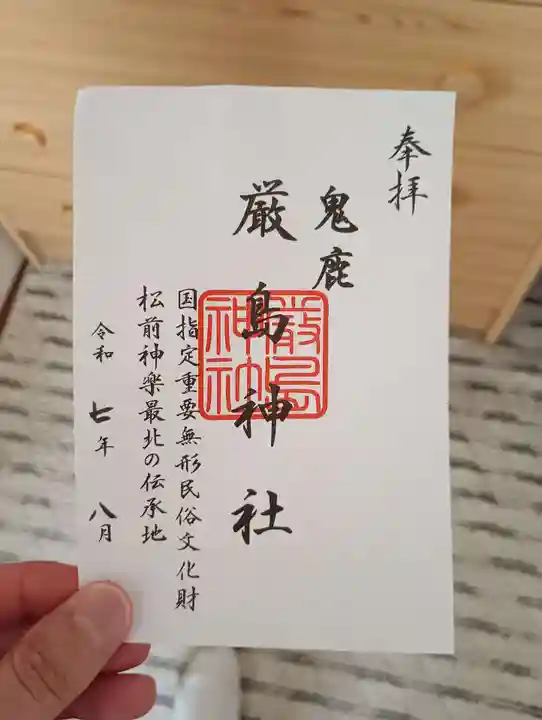 奉拝
鬼鹿
厳島神社
厳島神社
国指定重要無形民俗文化財
松前神楽最北の伝承地
令和七年八月